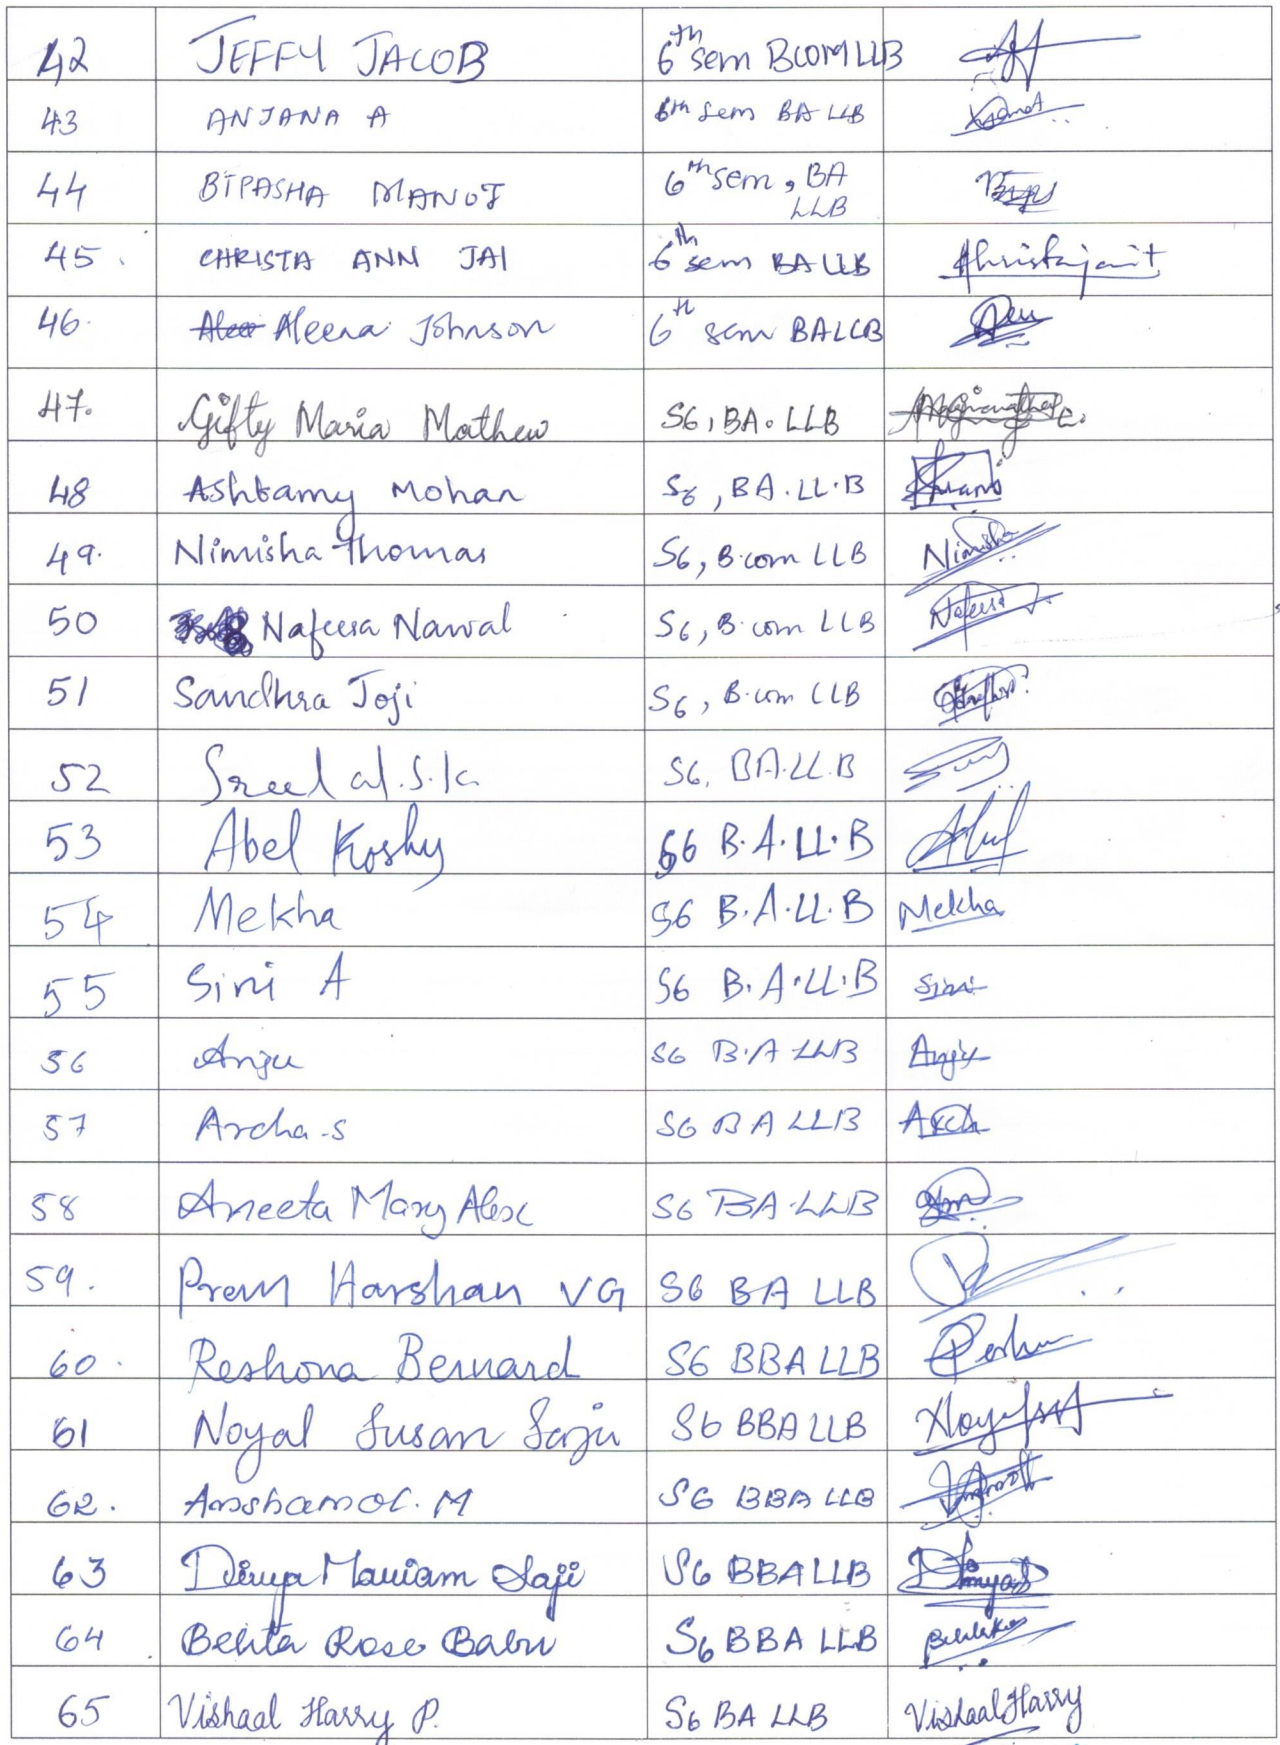 42 JEFFY JACOB 6th sem BCOM LLB
43 ANJANA A 6th sem BA LLB
44 BIPASHA MANOJ 6th sem, BA LLB
45. CHRISTA ANN JAI 6th sem BA LLB
46. Aleena Johnson 6th sem BALLB
47. Gifty Maria Mathew S6, BA. LLB
48 Ashtamy Mohan S6, BA.LL.B
49. Nimisha Thomas S6, B.com LLB Nimisha
50 Nafeesa Nawal S6, B.com LLB Nafeesa
51 Sandhra Joji S6, B.com LLB
52 S.K. S6. BA.LL.B
53 Abel Koshy S6 B.A.LL.B Abel
54 Mekha S6 B.A.LL.B Mekha
55 Sini A S6 B.A.LL.B Sini
56 Anju S6 B.A LLB Anju
57 Archa.S S6 BA LLB Arch
58 Aneeta Mary Alex S6 BA.LLB
59. Prem Harshan VG S6 BA LLB
60. Reshona Bernard S6 BBA LLB
61 Noyal Susan Saju S6 BBA LLB
62. M S6 BBA LLB
63 Divya Mariam Saji S6 BBA LLB
64 Belita Rose Babu S6 BBA LLB
65 Vishaal Harry P. S6 BA LLB Vishaal Harry